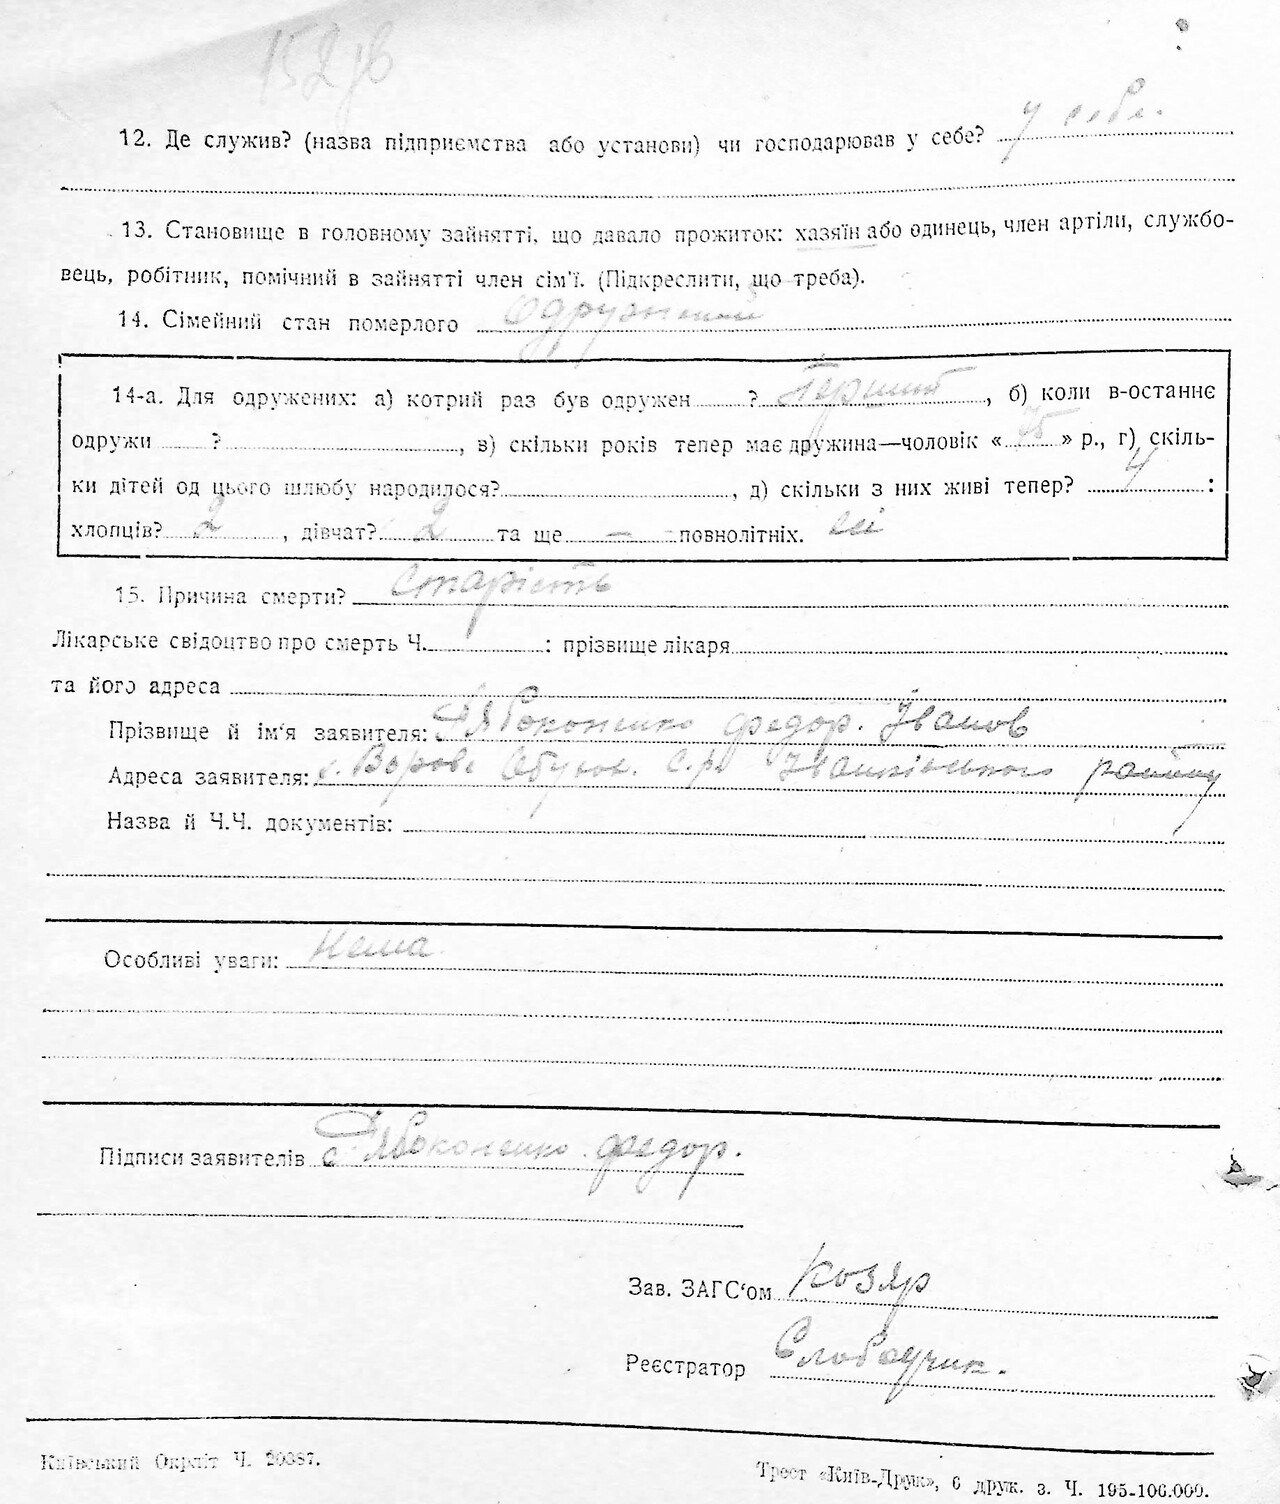 152 зв
12. Де служив? (назва підприємства або установи) чи господарював у себе? у себе.
13. Становище в головному зайнятті, що давало прожиток: хазяїн або одинець, член артіли, службо-
вець, робітник, помічний в зайнятті член сім'ї. (Підкреслити, що треба).
14. Сімейний стан померлого Одружений
14-а. Для одружених: а) котрий раз був одружен ? Перший, б) коли в-останнє
одружи ? , в) скільки років тепер має дружина—чоловік « 75 » р., г) скіль-
ки дітей од цього шлюбу народилося? , д) скільки з них живі тепер? 4 :
хлопців? 2 , дівчат? 2 та ще — повнолітніх. всі
15. Причина смерти? Старість
Лікарське свідоцтво про смерть Ч. : прізвище лікаря
та його адреса
Прізвище й ім'я заявителя: Федор. Іванов
Адреса заявителя: с. с.р. Іванківського району
Назва й Ч.Ч. документів:
Особливі уваги: Нема
Підписи заявителів Федор.
Зав. ЗАГС'ом Козяр
Реєстратор
Київський Окрліт Ч. 20387.
Трест «Київ-Друк», 6 друк. з. Ч. 195-100.000.